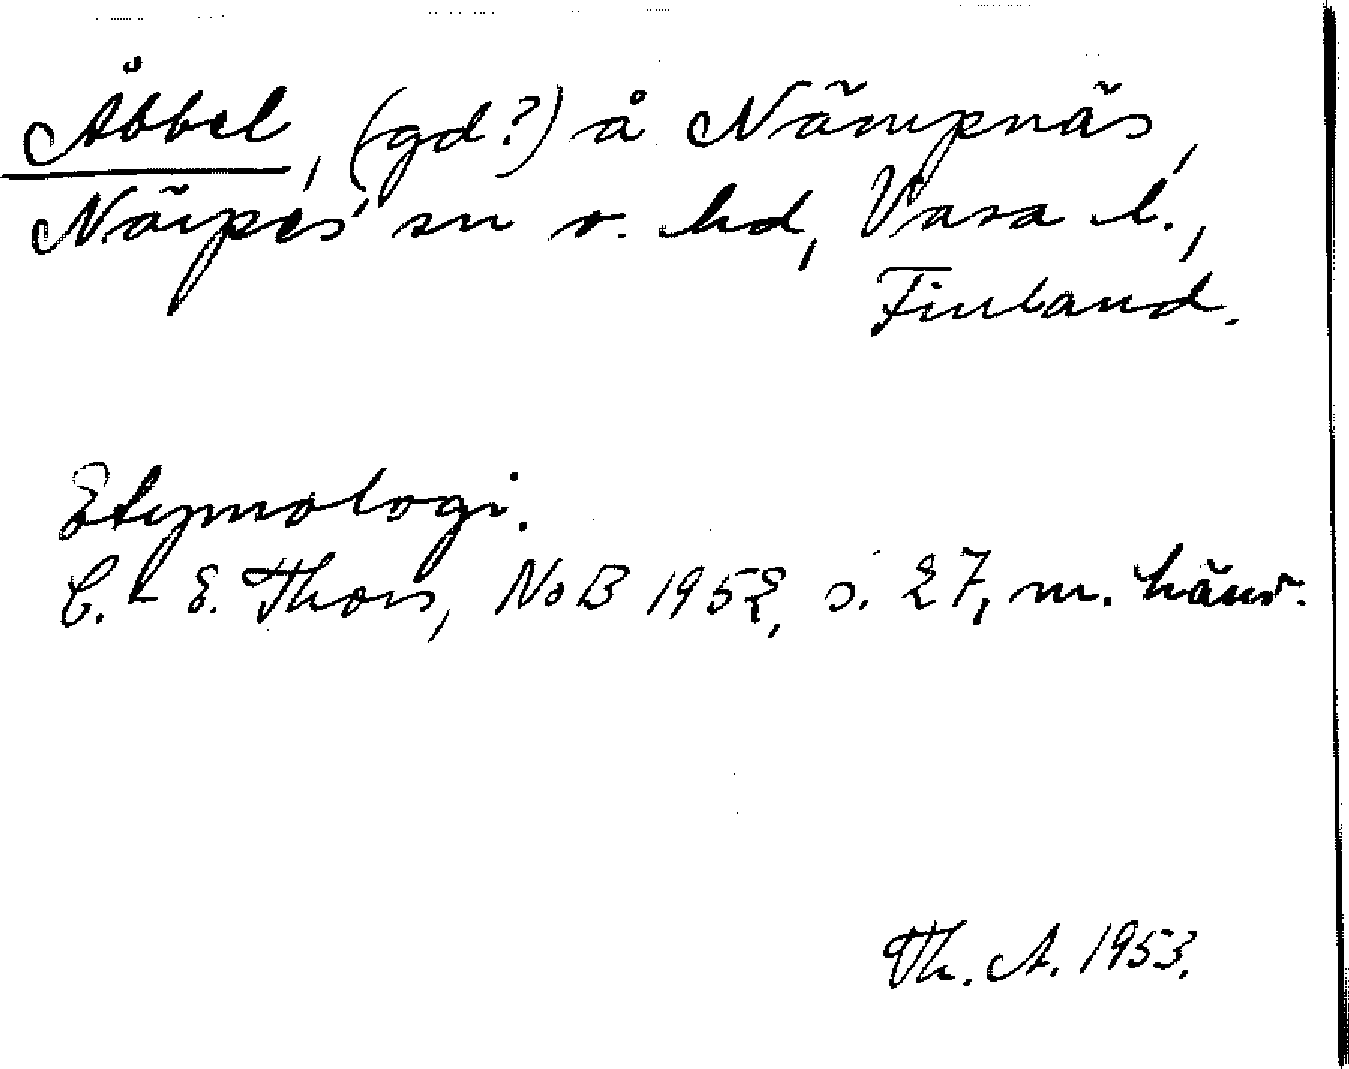 Åbbel, (gd?) å Nämpnäs,
Närpes sn o. hd, Vasa l.,
Finland.
Etymologi.
C.-E. Thors, NoB 1952, s. 27, m. hänv.
Th. A. 1953.